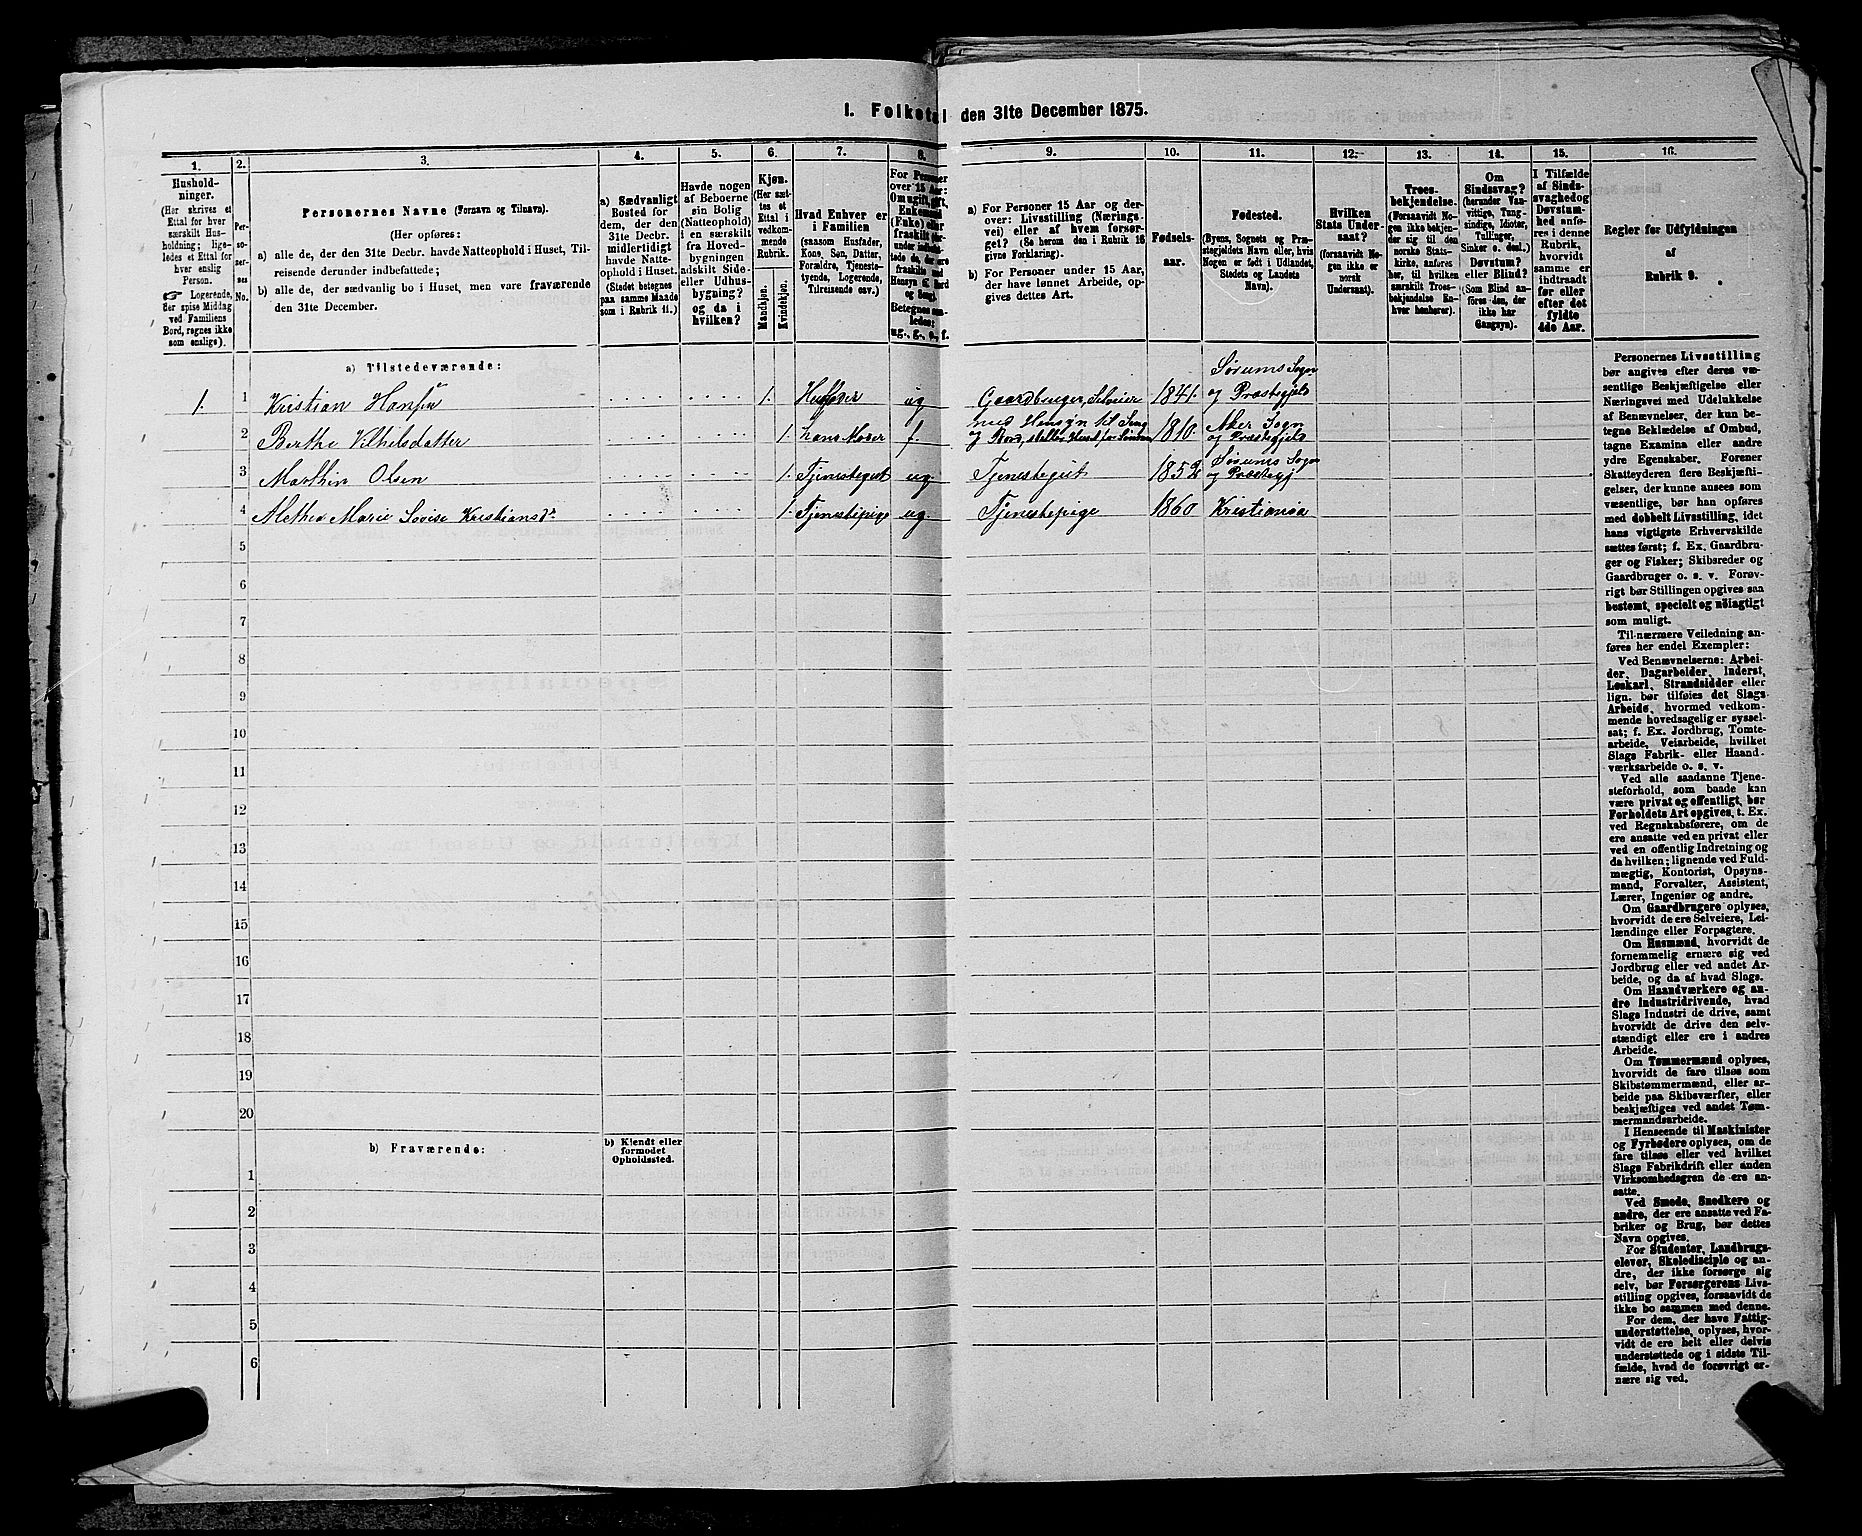 1. Folketal den 31te December 1875.
1.
2.
3.
4.
5.
6.
7.
8.
9.
10.
11.
12.
13.
14.
15.
16.
Hushold-
ninger.
(Her skrives et
Ettal for hver
særskilt Hus-
holdning; lige-
ledes et Ettal for
hver enslig
Person.
☞ Logerende,
der spise Middag
ved Familiens
Bord, regnes ikke
som enslige).
Per-
so-
ner-
nes
No.
Personernes Navne (Fornavn og Tilnavn).
(Her opføres:
a) alle de, der den 31te Decbr. havde Natteophold i Huset, Til-
reisende derunder indbefattede;
b) alle de, der sædvanlig bo i Huset, men vare fraværende
den 31te December.
a) Sædvanligt
Bosted for
dem, der den
31te Decbr.
midlertidigt
havde Natte-
ophold i Huset.
(Stedet betegnes
paa samme Maade
som i Rubrik 11.)
Havde nogen
af Beboerne
sin Bolig
(Natteophold)
i en særskilt
fra Hoved-
bygningen
adskilt Side-
eller Udhus-
bygning?
og da i
hvilken?
Kjøn.
(Her sæt-
tes et
Ettal i
vedkom-
mende
Rubrik.
Mandkjøn.
Kvindekjøn.
Hvad Enhver er
i Familien
(saasom Husfader,
Kone, Søn, Datter,
Forældre, Tjeneste-
tyende, Logerende,
Tilreisende osv.)
For Personer
over 15 Aar:
Om ugift, gift,
Enkemand
(Enke) eller
fraskilt (her-
under indbefat-
tede de, der ere
fraskilte med
Hensyn t. Bord
og Seng).
Betegnes saa-
ledes:
ug., g., e., f.
a) For Personer 15 Aar og der-
over: Livsstilling (Nærings-
vei) eller af hvem forsør-
get? (Se herom den i Rubrik 16
givne Forklaring).
b) For Personer under 15 Aar,
der have lønnet Arbeide, op-
gives dettes Art.
Fødsels-
aar.
Fødested.
(Byens, Sognets og Præ-
stegjeldets Navn, eller, hvis
Nogen er født i Udlandet,
Stedets og Landets
Navn).
Hvilken
Stats Under-
saat?
(forsaavidt No-
gen ikke er
norsk
Undersaat).
Troes-
bekjendelse.
(Forsaavidt No-
gen ikke bekjen-
der sig til den
norske Stats-
kirke, anføres
her, til hvilken
særskilt Troes-
bekjendelse En-
hver henhører).
Om
Sindssvag?
(herunder Van-
vittige, Tung-
sindige, Idioter,
Tullinger,
Sinker o. desl.)
Døvstum?
eller Blind?
(Som Blind an-
føres den, der
ikke har
Gangsyn).
I Tilfælde
af Sinds-
svaghed og
Døvstum-
hed anfø-
res i denne
Rubrik,
hvorvidt
samme er
indtraadt
før eller
efter det
fyldte
4de Aar.
Regler for Udfyldningen
af
Rubrik 9.
a) Tilstedeværende:
1. 1 Kristian Hansen 1. Husfader ug Gaardbruger, Selveier 1841. Sørums Sogn og Præstegjeld
2 Berthe Vilhelsdatter 1. hans Moder f. med Hensyn til Seng og Bord, 1810. Aker Sogn og Præstegjeld
3 Marthin Olsen 1. Tjenestegut ug. Tjenestegut 1852 Sørums Sogn og Præstegj
4 Alethe Marie Lovise Kristiansdr. 1. Tjenestepige ug. Tjenestepige 1860 Kristiania
5
6
7
8
9
10
11
12
13
14
15
16
17
18
19
20
b) Fraværende:
b) Kjendt eller
formodet
Opholdssted.
1
2
3
4
5
6
Personernes Livsstilling
bør angives efter deres væ-
sentlige Beskjæftigelse eller
Næringsvei med Udelukkelse
af Benævnelser, der kun be-
tegne Beklædelse af Ombud,
tagne Examina eller andre
ydre Egenskaber. Forener
Skatteyderen flere Beskjæfti-
gelser, der kunne ansees som
væsentlige, bør han opføres
med dobbelt Livsstilling, idet
hans vigtigste Erhvervskilde
sættes først; f. Ex. Gaardbru-
ger og Fisker; Skibsreder og
Gaardbruger o. s. v. Forøv-
rigt bør Stillingen opgives saa
bestemt, specielt og nöiagtigt
som muligt.
Til nærmere Veiledning an-
føres her endel Exempler:
Ved Benævnelserne: Arbei-
der, Dagarbeider, Inderst,
Løskarl, Strandsidder eller
lign. bør tilføies det Slags
Arbeide, hvormed vedkom-
mende hovedsagelig er syssel-
sat; f. Ex. Jordbrug, Tomte-
arbeide, Veiarbeide, hvilket
Slags Fabrik- eller Haand-
værksarbeide o. s. v.
Ved alle saadanne Tjene-
steforhold, som baade kan
være privat og offentligt, bør
Forholdets Art opgives, t. Ex.
ved Regnskabsførere, om de
ere ansatte ved en privat eller
ved en offentlig Indretning og
da hvilken; lignende ved Fuld-
mægtig, Kontorist, Opsyns-
mand, Forvalter, Assistent,
Lærer, Ingeniør og andre.
Om Gaardbrugere oplyses,
hvorvidt de ere Selveiere, Lei-
lændinge eller Forpagtere.
Om Husmænd, hvorvidt de
fornemmelig ernære sig ved
Jordbrug eller ved andet Ar-
beide, og da af hvad Slags.
Om Haandværkere og an-
dre Industridrivende, hvad
Slags Industri de drive, samt
hvorvidt de drive den selv-
stændigt eller ere i andres
Arbeide.
Om Tømmermænd oplyses,
hvorvidt de fare tilsøs som
Skibstømmermænd, eller ar-
beide paa Skibsværfter, eller
beskjæftiges ved andet Tøm-
mermandsarbeide.
I Henseende til Maskinister
og Fyrbødere oplyses, om de
fare tilsøs eller ved hvilket
Slags Fabrikdrift eller anden
Virksomhedsgren de ere an-
satte.
Ved Smede, Snedkere og
andre, der ere ansatte ved Fa-
briker og Brug, bør dettes
Navn opgives.
For Studenter, Landbrugs-
elever, Skoledisciple og an-
dre, der ikke forsørge sig
selv, bør Forsørgerens Livs-
stilling opgives, forsaavidt de
ikke bo sammen med denne.
For dem, der have Fattig-
understøttelse, oplyses, hvor-
vidt de ere helt eller delvis
understøttede og i sidste Til-
fælde, hvad de forøvrigt er-
nære sig ved.